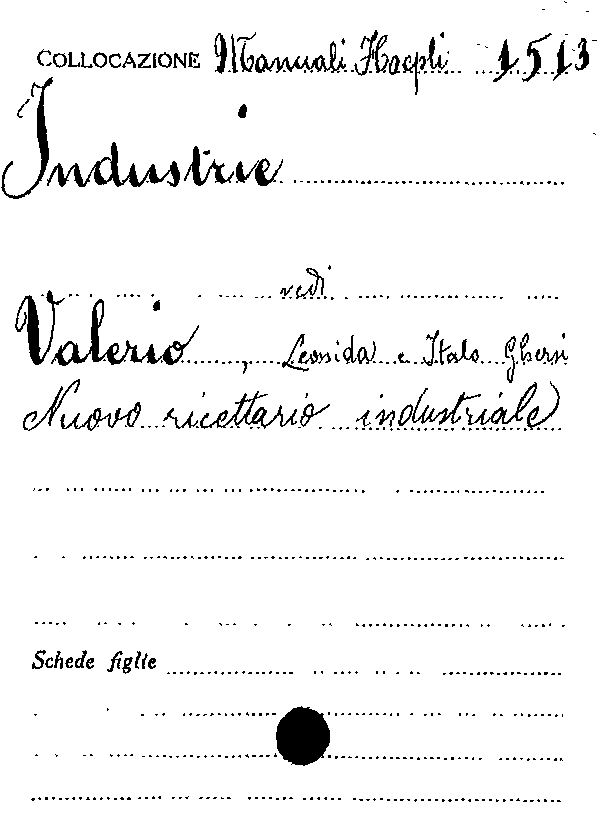 COLLOCAZIONE Manuali Hoepli 1513
Industrie
vedi
Valerio, Leonida e Italo Ghersi
Nuovo ricettario industriale
Schede figlie